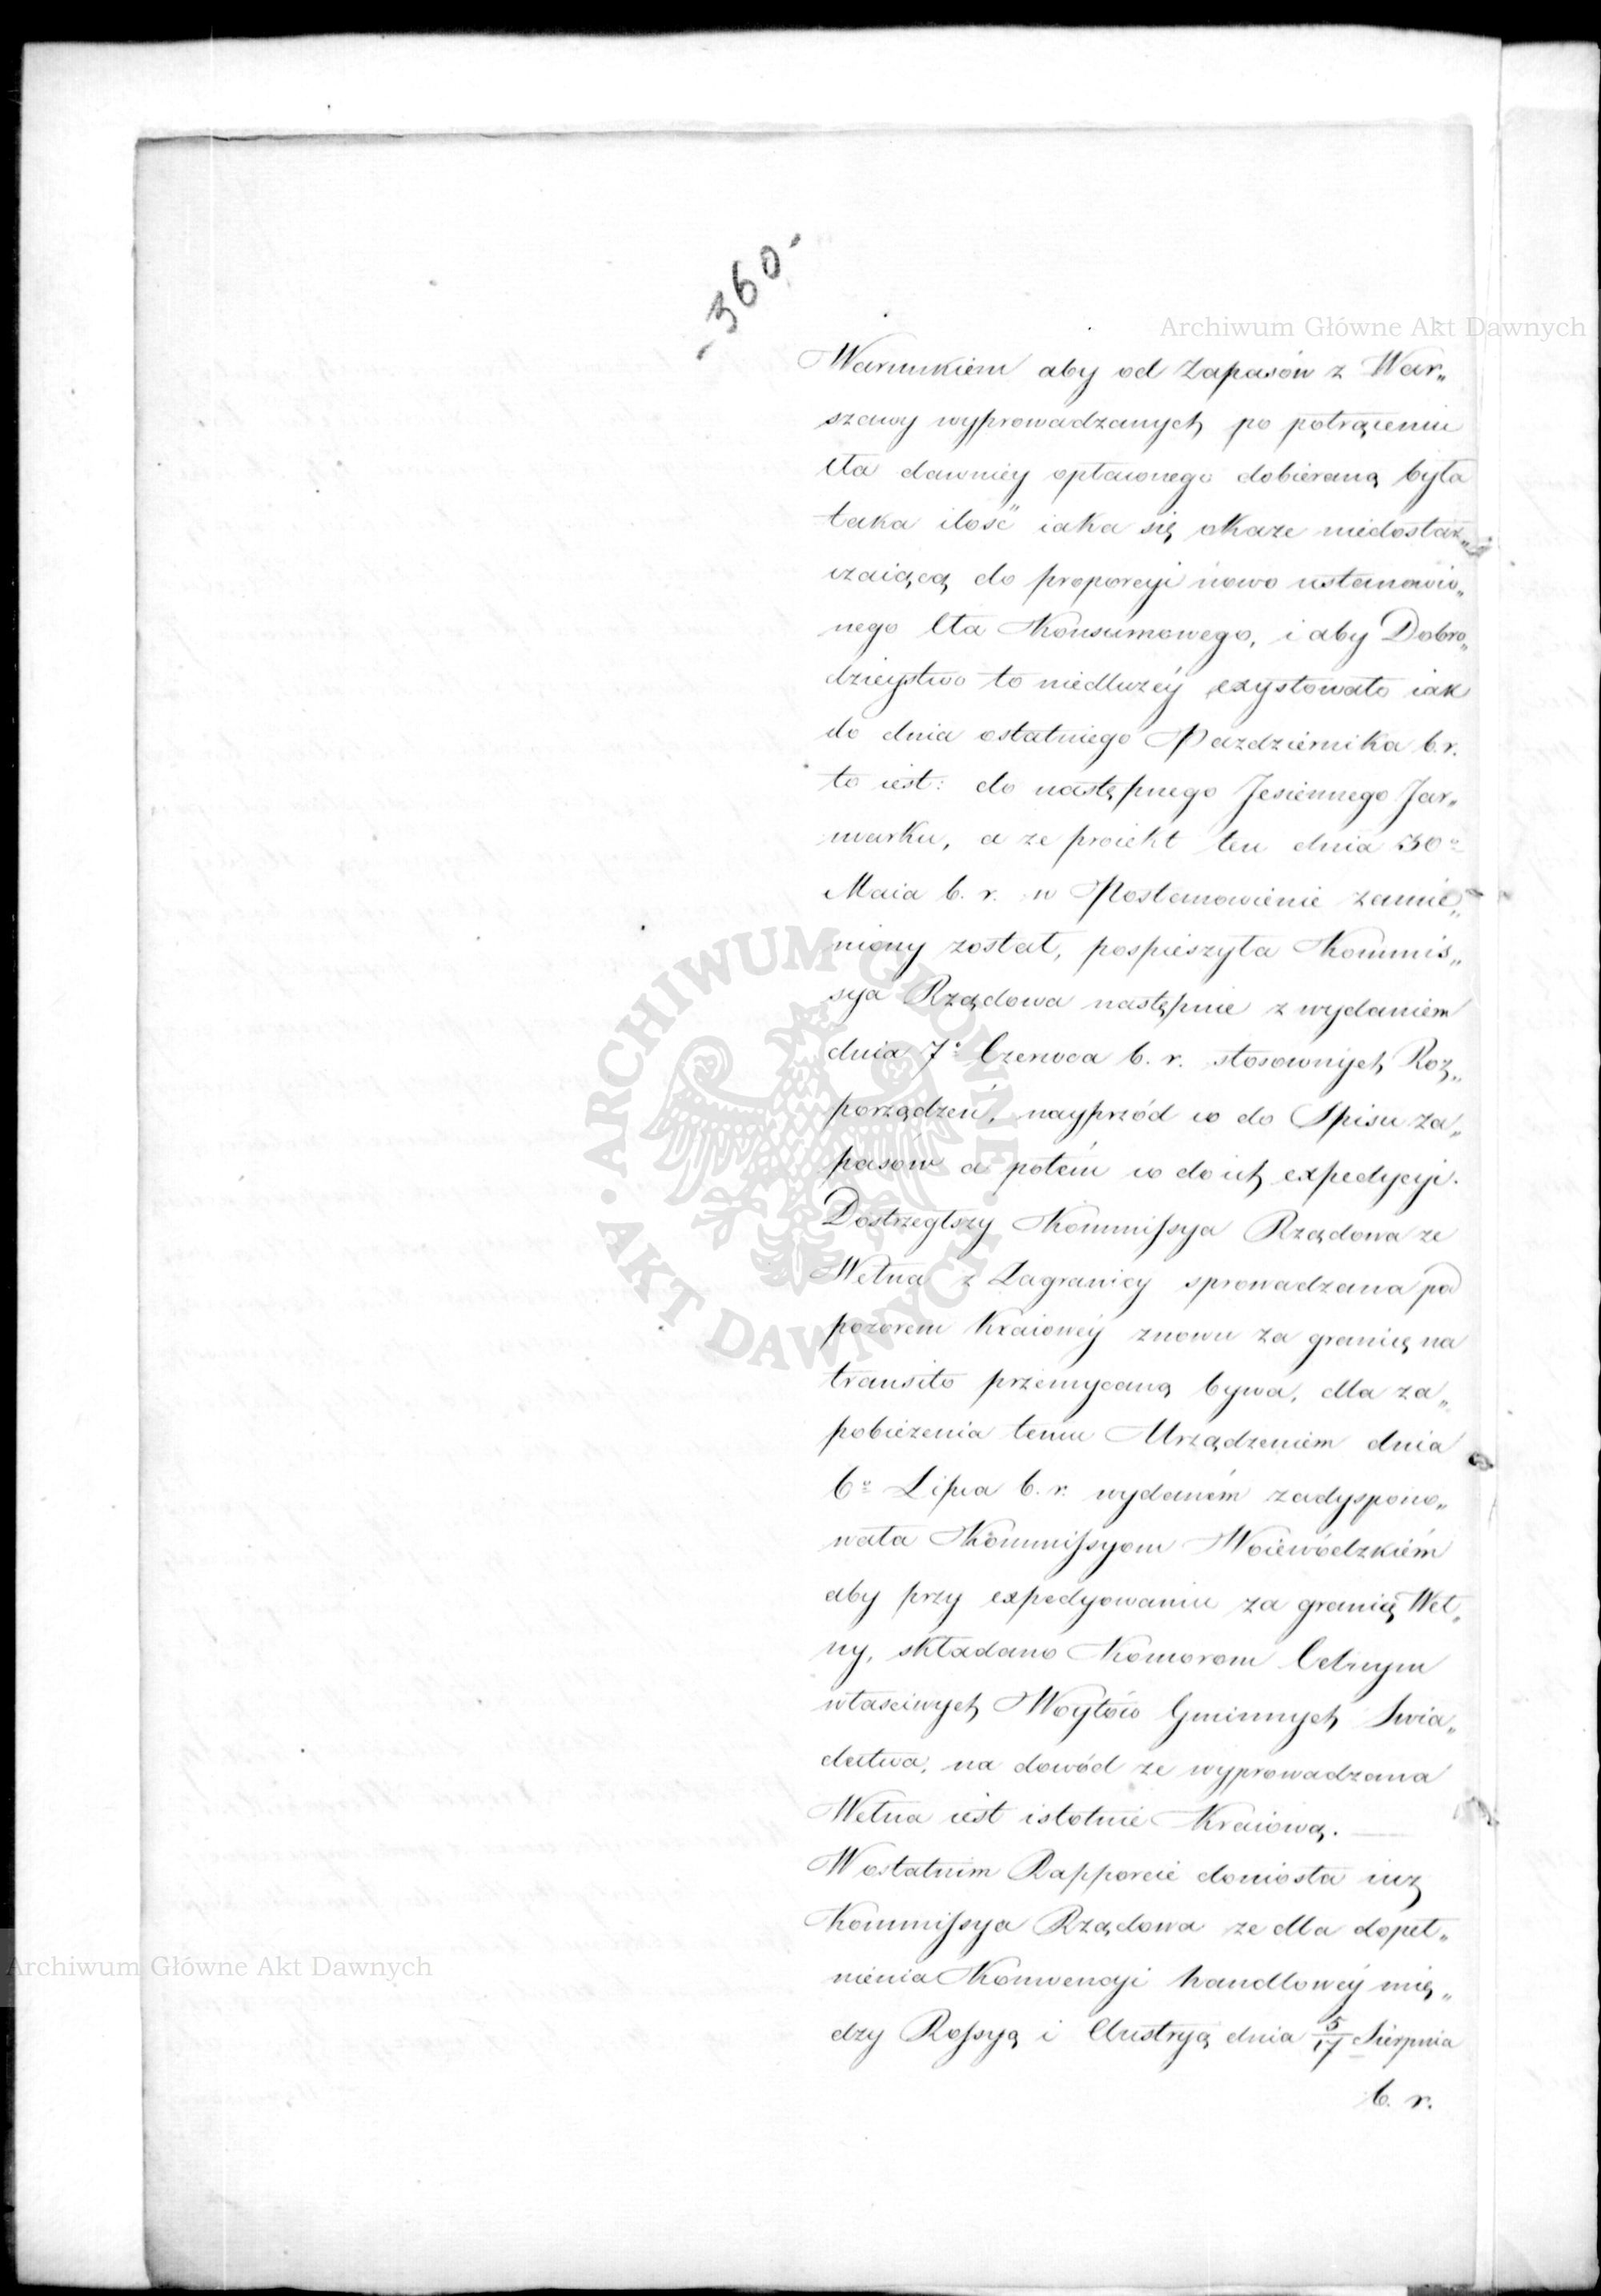 -360-
Archiwum Główne Akt Dawnych
Warunkiem aby od Zapasów z War„
szawy wyprowadzanych po potrąceniu
Cła dawniey opłaconego dobieraną była
taka ilość iaka się okaze niedostar„
czaiącą do proporcyi nowo ustanowio„
nego Cła Konsumowego, i aby Dobro„
dzieystwo to niedłużéy exystowało iak
do dnia ostatniego Pazdziernika b. r.
to iest: do następnego Jesiennego Jar„
marku, a ze proiekt ten dnia 30º
Maia b. r. w Postanowienie zamie„
niony został, pospieszyła Kommis„
sya Rządowa następnie z wydaniem
dnia 7º Czerwca b. r. stosownych Roz„
porządzeń, nayprzód co do Spisu za„
pasów a potém co do ich expedycyi.
Dostrzegłszy Kommissya Rządowa ze
Wełna z Zagranicy sprowadzana pod
pozorem Kraiowéy znowu za granicę na
transito przemycaną bywa, dla za„
pobieżenia temu Urządzeniem dnia
6º Lipca b. r. wydaném zadyspono„
wała Kommissyom Woiewódzkiém
aby przy expedyowaniu za granicę Weł„
ny, składano Komorom Celnym
właściwych Woytów Gminnych Swia„
dectwa, na dowód ze wyprowadzana
Wełna iest istotnie Kraiową.
W ostatnim Rapporcie doniosła iuż
Kommissya Rządowa ze dla dopeł„
nienia Konwencyi handlowéy mię„
dzy Rossyą i Austryą dnia 5/17 Sierpnia
b. r.
ARCHIWUM GŁÓWNE · AKT DAWNYCH ·
Archiwum Główne Akt Dawnych